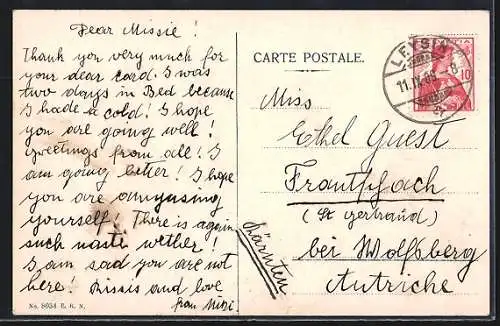 Dear Missie!
Thank you very much for
your dear card. I was
two days in Bed because
I hade a cold! I hope
you are going well!
Greetings from all! I
am going better! I hope
you are amyusing
yourself! There is again
such naste wether!
I am sad you are not
here! Kissis and love
from Mitzi
No. 8034 E. R. N.
CARTE POSTALE.
LEYSIN
11.IV.09.-8
10
Miss
Ethel Guest
Frantschach
(St Gertraud)
bei Wolfsberg
Kärnten
Autriche